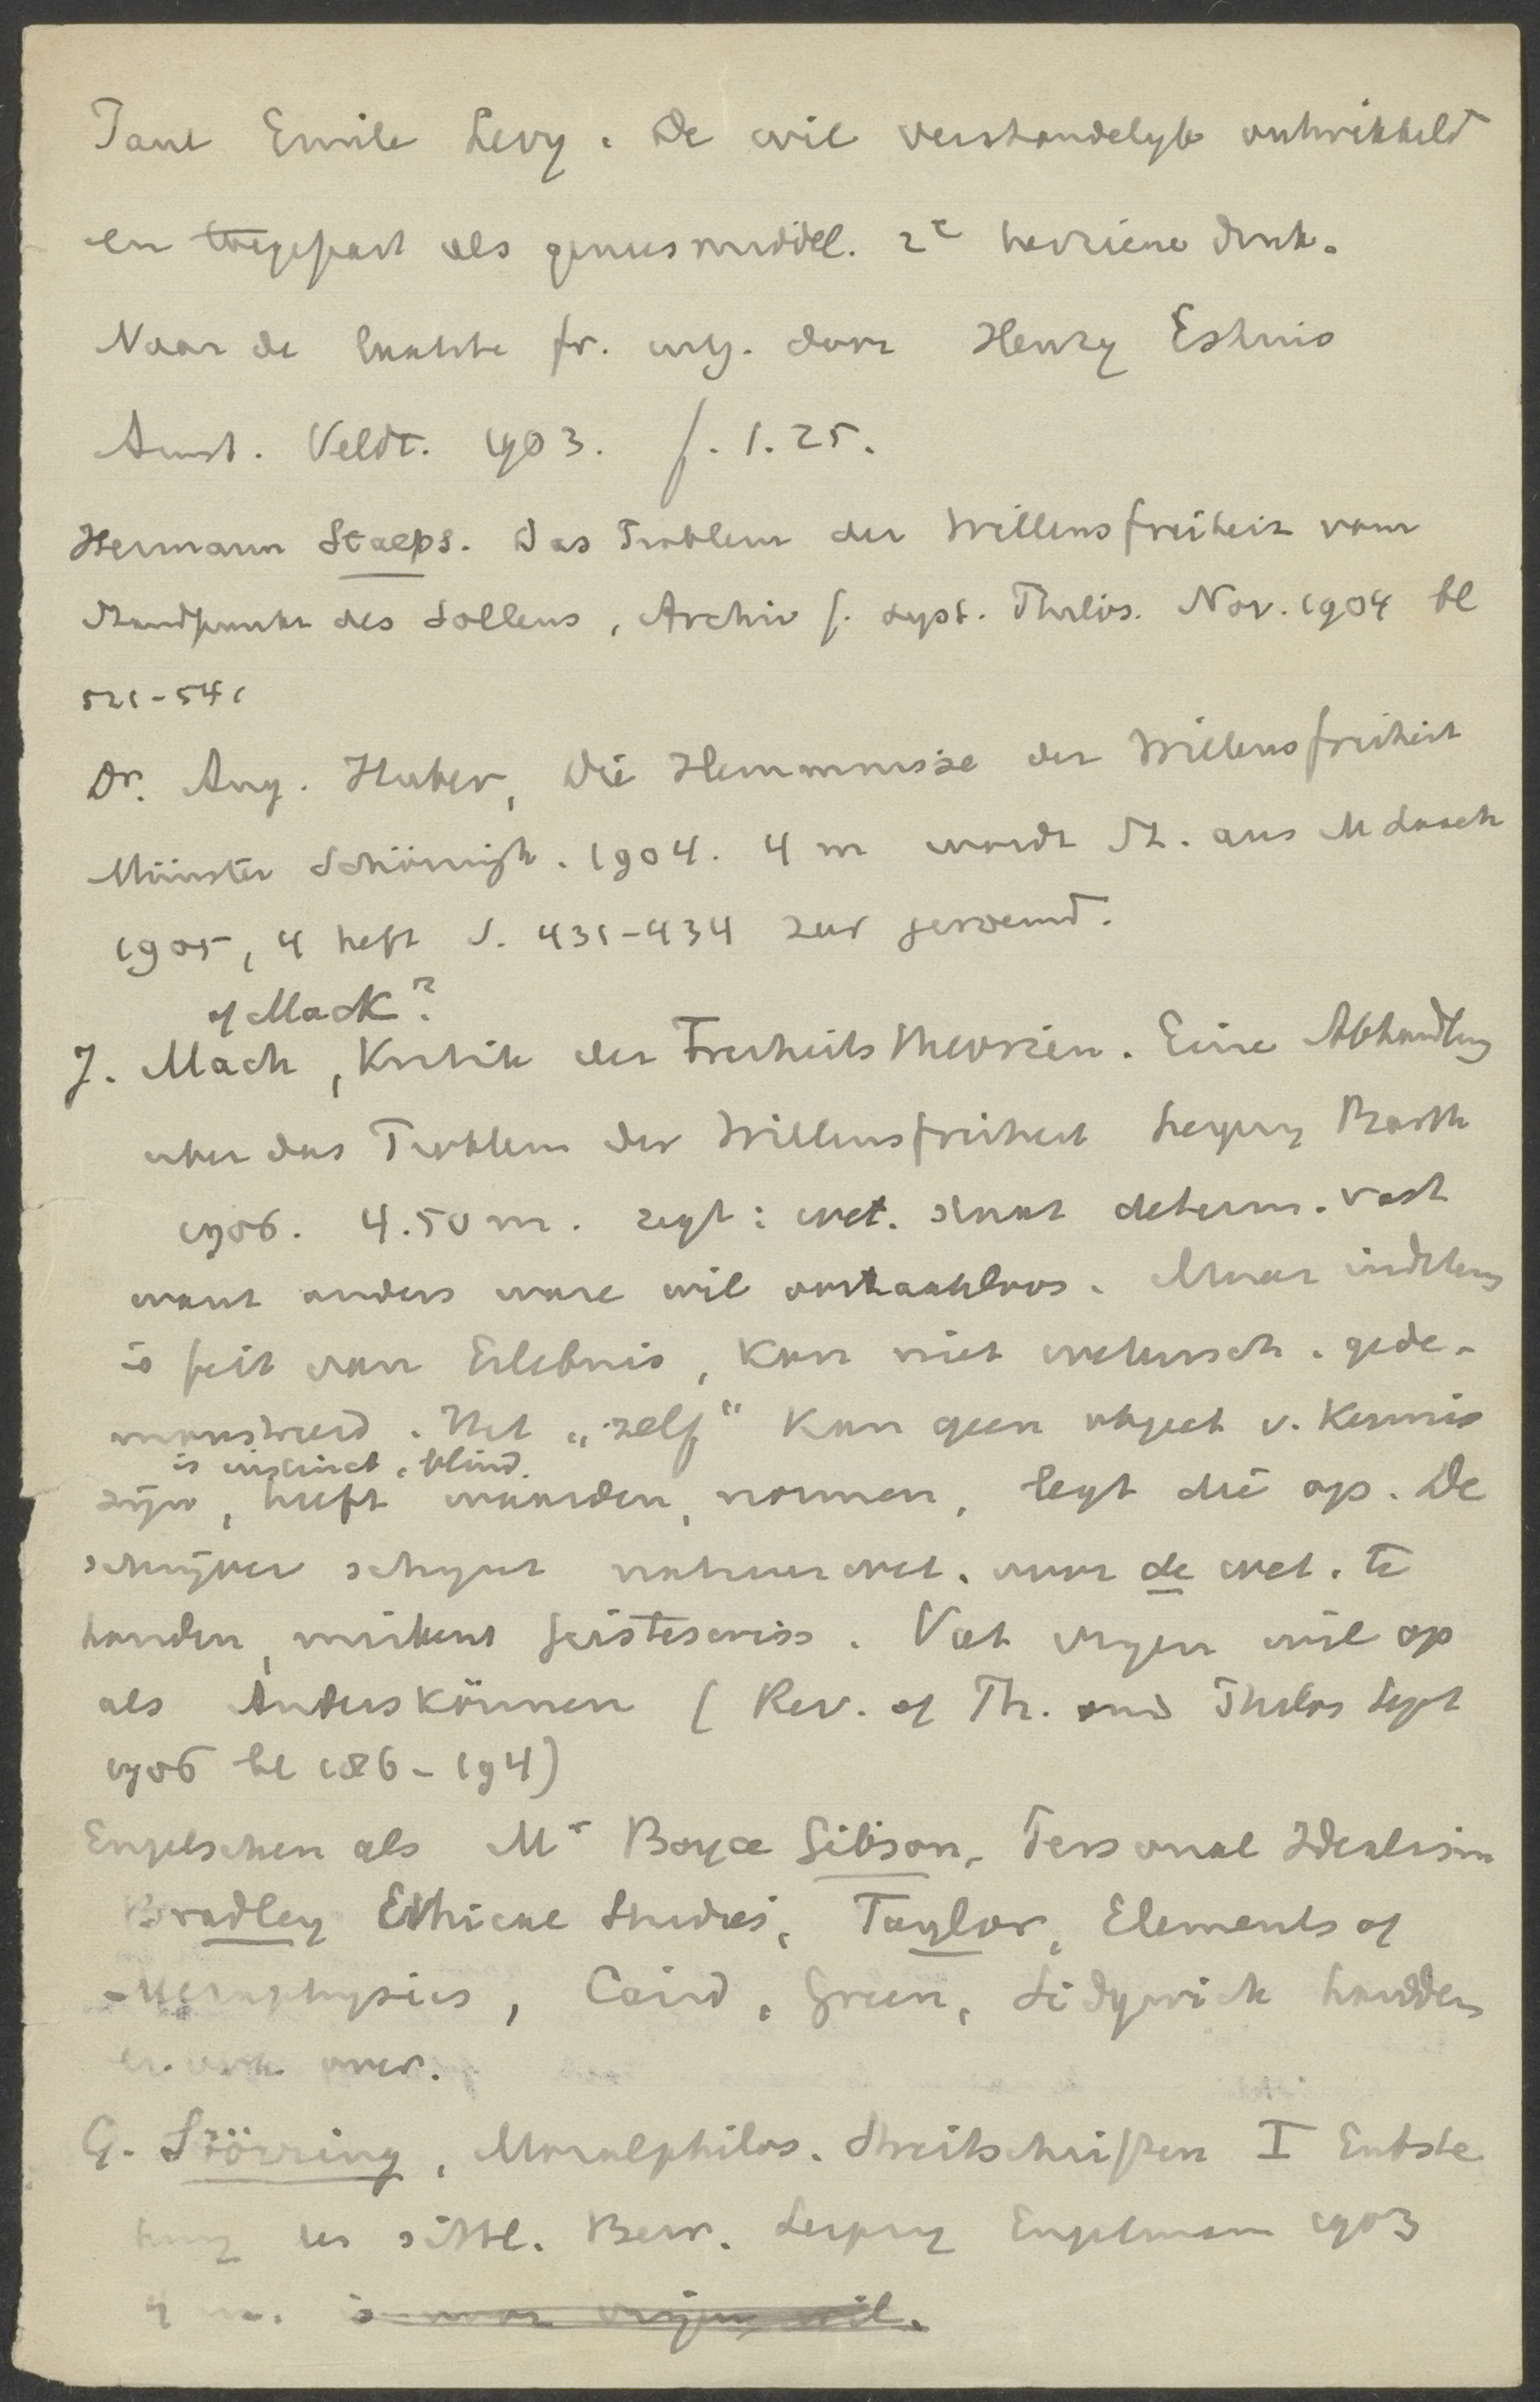 Paul Emile Levy. De wil verstandelyk ontwikkeld
en toegepast als geneesmiddel. 2e herziene druk.
Naar de laatste fr. uitg. door Henry Eshuis
Amst. Veldt. 1903. f. 1.25.
Hermann Staeps. Das Problem der Willensfreiheit vom
Standpunkt des Sollens, Archiv f. syst. Philos. Nov. 1904 bl
521-541
Dr. Aug. Huber, Die Hemmnisse der Willensfreiheit
Münster Schöningh. 1904. 4 m wordt St. aus M Laach
1905, 4 heft S. 431-434 zeer geroemd.
of Mack?
J. Mach, Kritik der Freiheitstheorien. Eine Abhandlung
uber das Problem der Willensfreiheit Leipzig Barth
1906. 4.50 m. zegt: wet. staat determ. vast
want anders ware wil oorzaakloos. Maar indeterm
is feit van Erlebnis, kan niet wetensch. gede-
monstreerd. Het „zelf“ kan geen object v. kennis
is instinct, blind.
zijn, heeft waarden, normen, legt die op. De
schrijver schynt natuurwet. voor de wet. te
houden, miskent Geisteswiss. Vat vryen wil op
als Anderskönnen (Rev. of Th. and Philos Sept
1906 bl 186-194)
Engelschen als Mr Boyce Gibson, Personal Idealism
Bradley Ethical Studies, Taylor, Elements of
Metaphysics, Caird, Green, Sidgwick handden
er ook over.
G. Störring, Moralphilos. Streitschriften I Entste
hung des sittl. Bew. Leipzig Engelmann 1903
4 m. is voor vrijen wil.